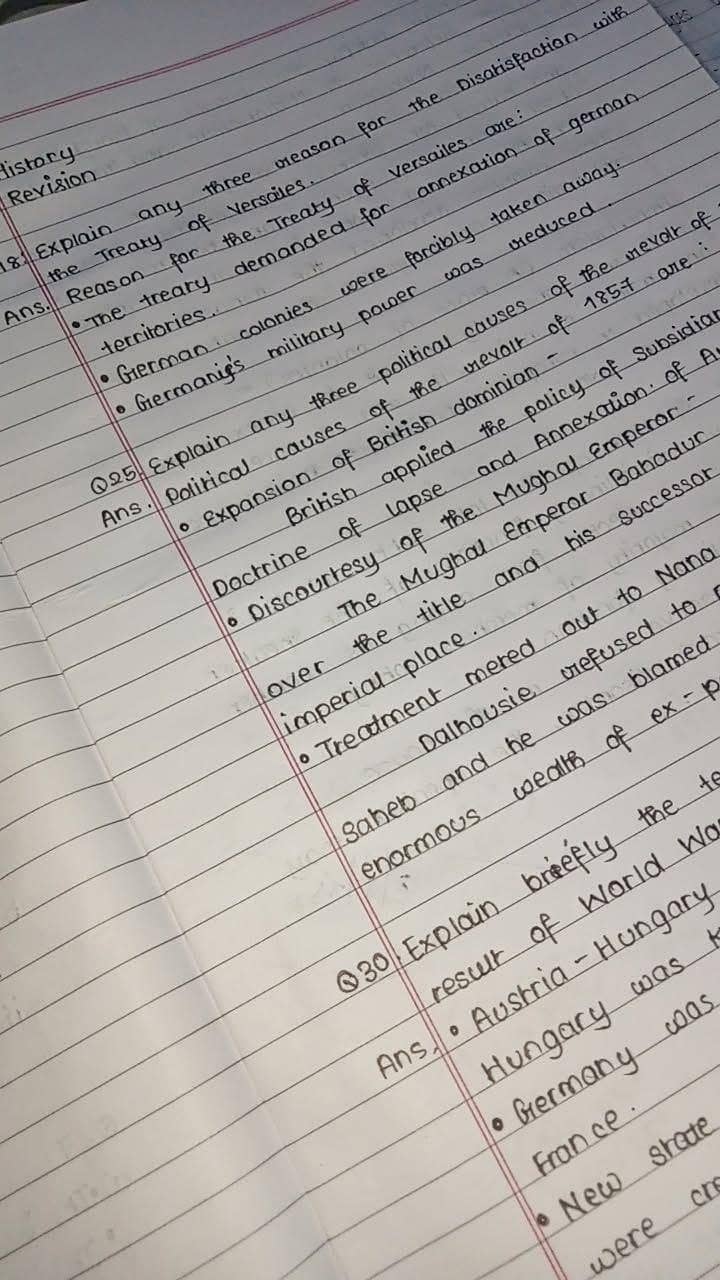 History
Revision
18. Explain any three reason for the Disatisfaction with
the Treaty of Versailes.
Ans. Reason for the Treaty of Versailes are:
• The treaty demanded for annexation of german
territories.
• German colonies were forcibly taken away.
• Germanig's military power was reduced.
Q25. Explain any three political causes of the revolt of
Ans. Political causes of the revolt of 1857 are:
• Expansion of British dominian -
British applied the policy of Subsidiar
Doctrine of lapse and Annexation of A
• Discourtesy of the Mughal Emperor -
The Mughal Emperor Bahadur
over the title and his successor
imperial place.
• Treatment mered out to Nana
Dalhousie refused to
Saheb and he was blamed
enormous wealth of ex-p
Q30. Explain briefly the te
result of World Wa
Ans. • Austria-Hungary
Hungary was
• Germany was
France.
• New state
were cre